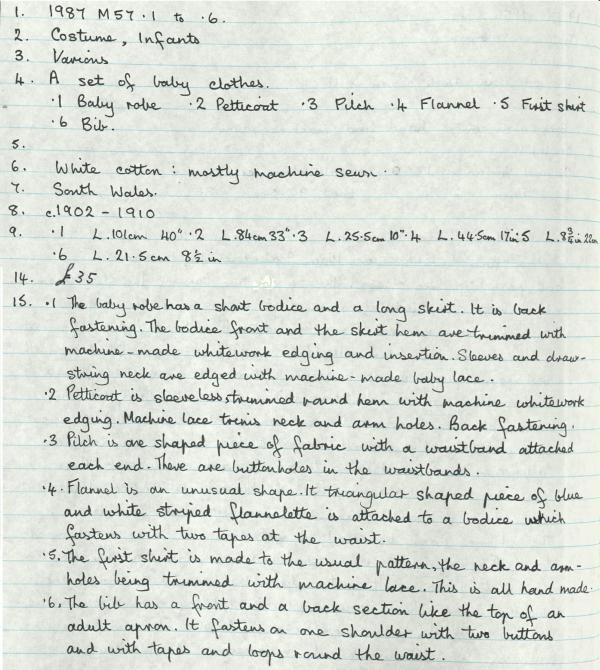 1. 1987 M57 ·1 to ·6.
2. Costume, Infants
3. Various
4. A set of baby clothes.
·1 Baby robe ·2 Petticoat ·3 Pilch ·4 Flannel ·5 First shirt
·6 Bib.
5.
6. White cotton : mostly machine sewn.
7. South Wales.
8. c.1902 - 1910
9. ·1 L.101cm 40" ·2 L.84cm 33" ·3 L.25.5cm 10" ·4 L.44.5cm 17in ·5 L.8¾in 22cm
·6 L.21.5cm 8½in
14. £35
15. ·1 The baby robe has a short bodice and a long skirt. It is back
fastening. The bodice front and the skirt hem are trimmed with
machine-made whitework edging and insertion. Sleeves and draw-
string neck are edged with machine-made baby lace.
·2 Petticoat is sleeveless trimmed round hem with machine whitework
edging. Machine lace trims neck and arm holes. Back fastening.
·3 Pilch is one shaped piece of fabric with a waistband attached
each end. There are buttonholes in the waistbands.
·4. Flannel is an unusual shape. It triangular shaped piece of blue
and white striped flannelette is attached to a bodice which
fastens with two tapes at the waist.
·5. The first shirt is made to the usual pattern, the neck and arm-
holes being trimmed with machine lace. This is all hand made.
·6. The bib has a front and a back section like the top of an
adult apron. It fastens on one shoulder with two buttons
and with tapes and loops round the waist.